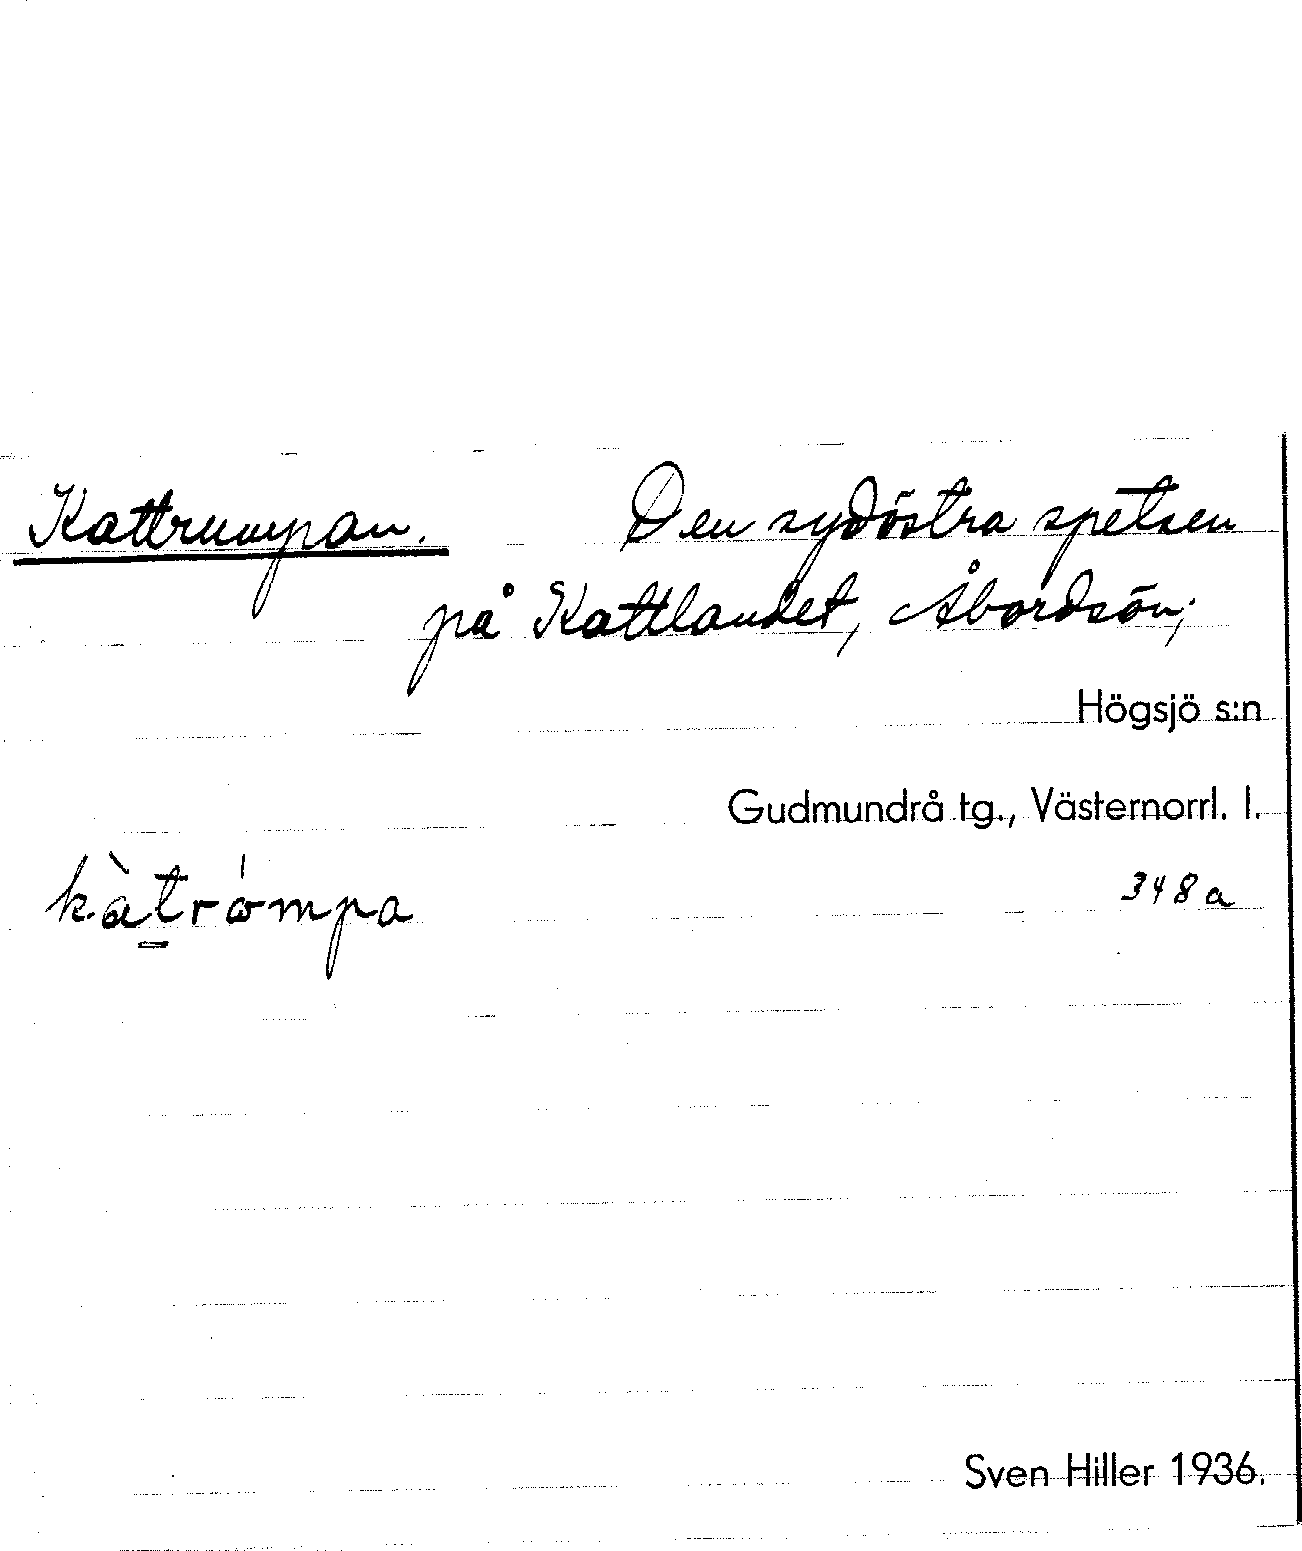 Kattrumpan. Den sydöstra spetsen
på Kattlandet, Åbordsön;
Högsjö s:n
Gudmundrå tg., Västernorrl. l.
kàtrómpa 348a
Sven Hiller 1936.